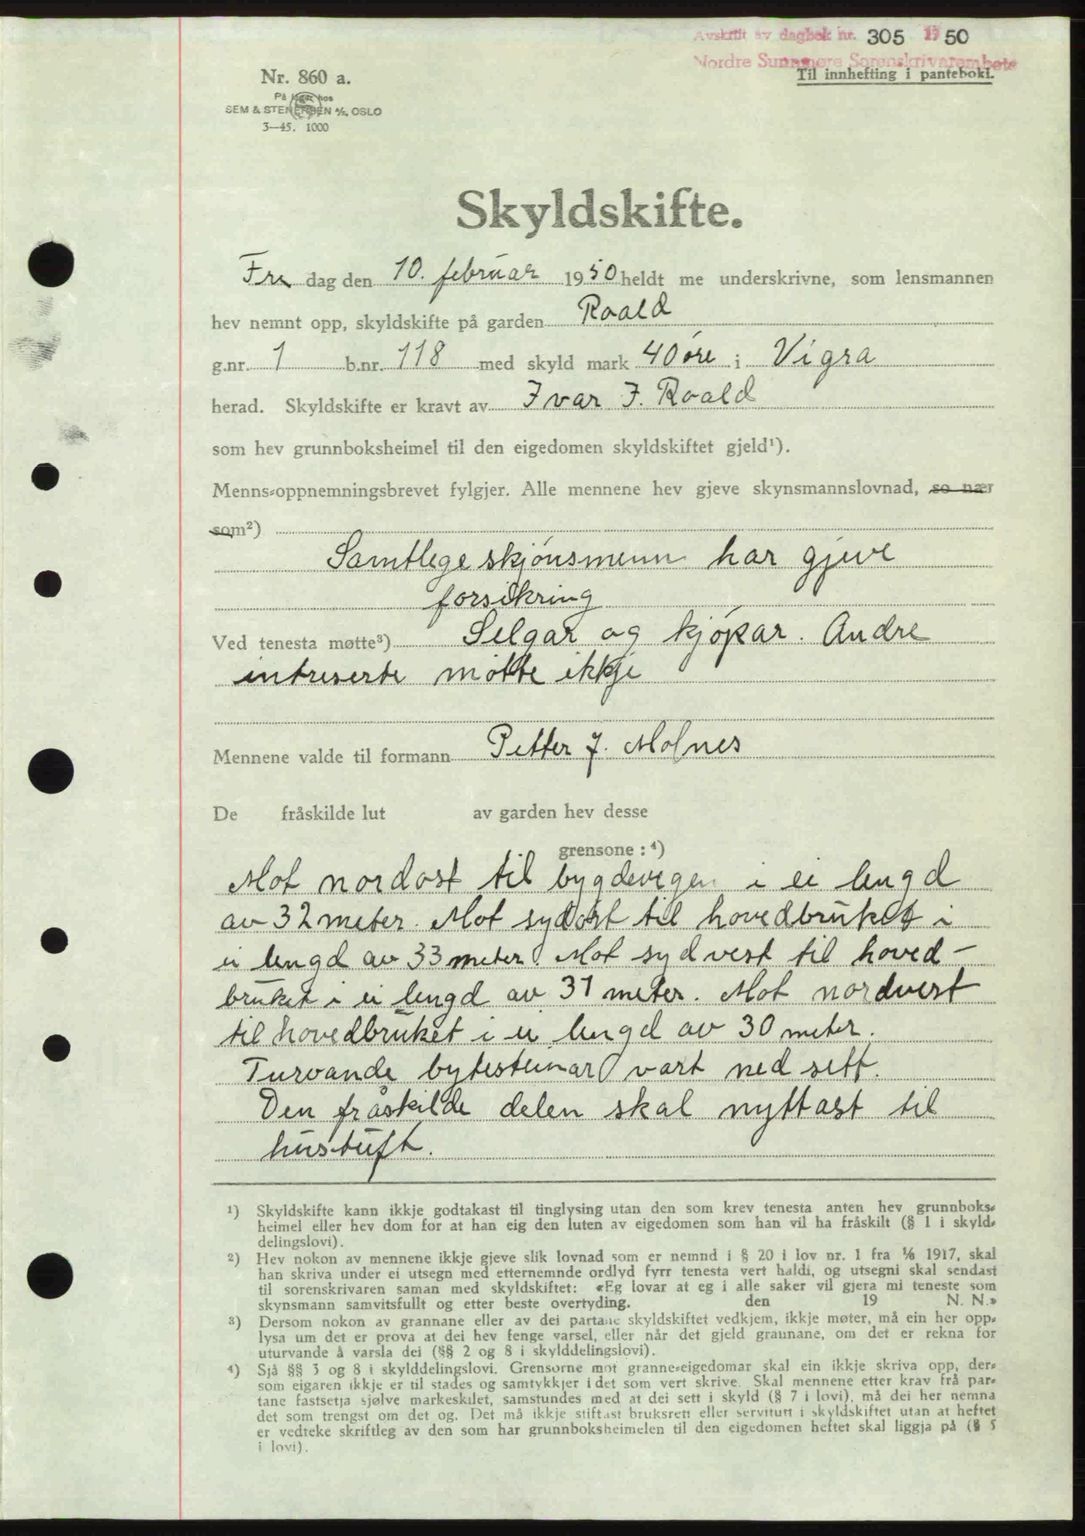 Avskrift av dagbok nr. 305 1950
Nordre Sunnmøre Sorenskrivarembete
Til innhefting i panteboki.
Nr. 860 a.
På lager hos
SEM & STENERSEN A/S, OSLO
3—45. 1000
Skyldskifte.
Fre dag den 10. februar 1950 heldt me underskrivne, som lensmannen
hev nemnt opp, skyldskifte på garden Roald
g.nr. 1 b.nr. 118 med skyld mark 40 øre i Vigra
herad. Skyldskifte er kravt av Ivar J. Roald
som hev grunnboksheimel til den eigedomen skyldskiftet gjeld¹).
Menns-oppnemningsbrevet fylgjer. Alle mennene hev gjeve skynsmannslovnad, so nær
som²)
Samtlege skjónsmenn har gjeve
forsikring
Ved tenesta møtte³) Selgar og kjópar. Andre
intreserte møtte ikkje
Mennene valde til formann Petter J. Molnes
De fråskilde lut av garden hev desse
grensone : ⁴)
Mot nordost til bygdevegen i ei lengd
av 32 meter. Mot sydost til hovedbruket i
ei lengd av 33 meter. Mot sydvest til hoved-
bruket i ei lengd av 31 meter. Mot nordvest
til hovedbruket i ei lengd av 30 meter.
Turvande bytesteinar vart ned sett.
Den fråskilde delen skal nyttast til
hustuft.
¹) Skyldskifte kann ikkje godtakast til tinglysing utan den som krev tenesta anten hev grunnboks-
heimel eller hev dom for at han eig den luten av eigedomen som han vil ha fråskilt (§ 1 i skyld-
delingslovi).
²) Hev nokon av mennene ikkje gjeve slik lovnad som er nemnd i § 20 i lov nr. 1 fra ⅙ 1917, skal
han skriva under ei utsegn med etternemnde ordlyd fyrr tenesta vert haldi, og utsegni skal sendast
til sorenskrivaren saman med skyldskiftet: «Eg lovar at eg i alle saker vil gjera mi teneste som
skynsmann samvitsfullt og etter beste overtyding. den 19 N. N.»
³) Dersom nokon av grannane eller av dei partane skyldskiftet vedkjem, ikkje møter, må ein her opp-
lysa um det er prova at dei hev fenge varsel, eller når det gjeld grannane, om det er rekna for
uturvande å varsla dei (§§ 2 og 8 i skylddelingslovi).
⁴) Sjå §§ 3 og 8 i skylddelingslovi. Grensorne mot granne-eigedomar skal ein ikkje skriva opp, der-
som eigaren ikkje er til stades og samtykkjer i det som vert skrive. Skal mennene etter krav frå par-
tane fastsetja sjølve markeskilet, samstundes med at dei sett i skyld (§ 7 i lovi), må dei her nemna
det som trengst om det og. Det må ikkje stiftast bruksrett eller servitutt i skyldskiftet utan at heftet
er vedteke skriftleg av den som har grunnboksheimelen til den eigedomen heftet skal liggja på (§ 5
i lovi).